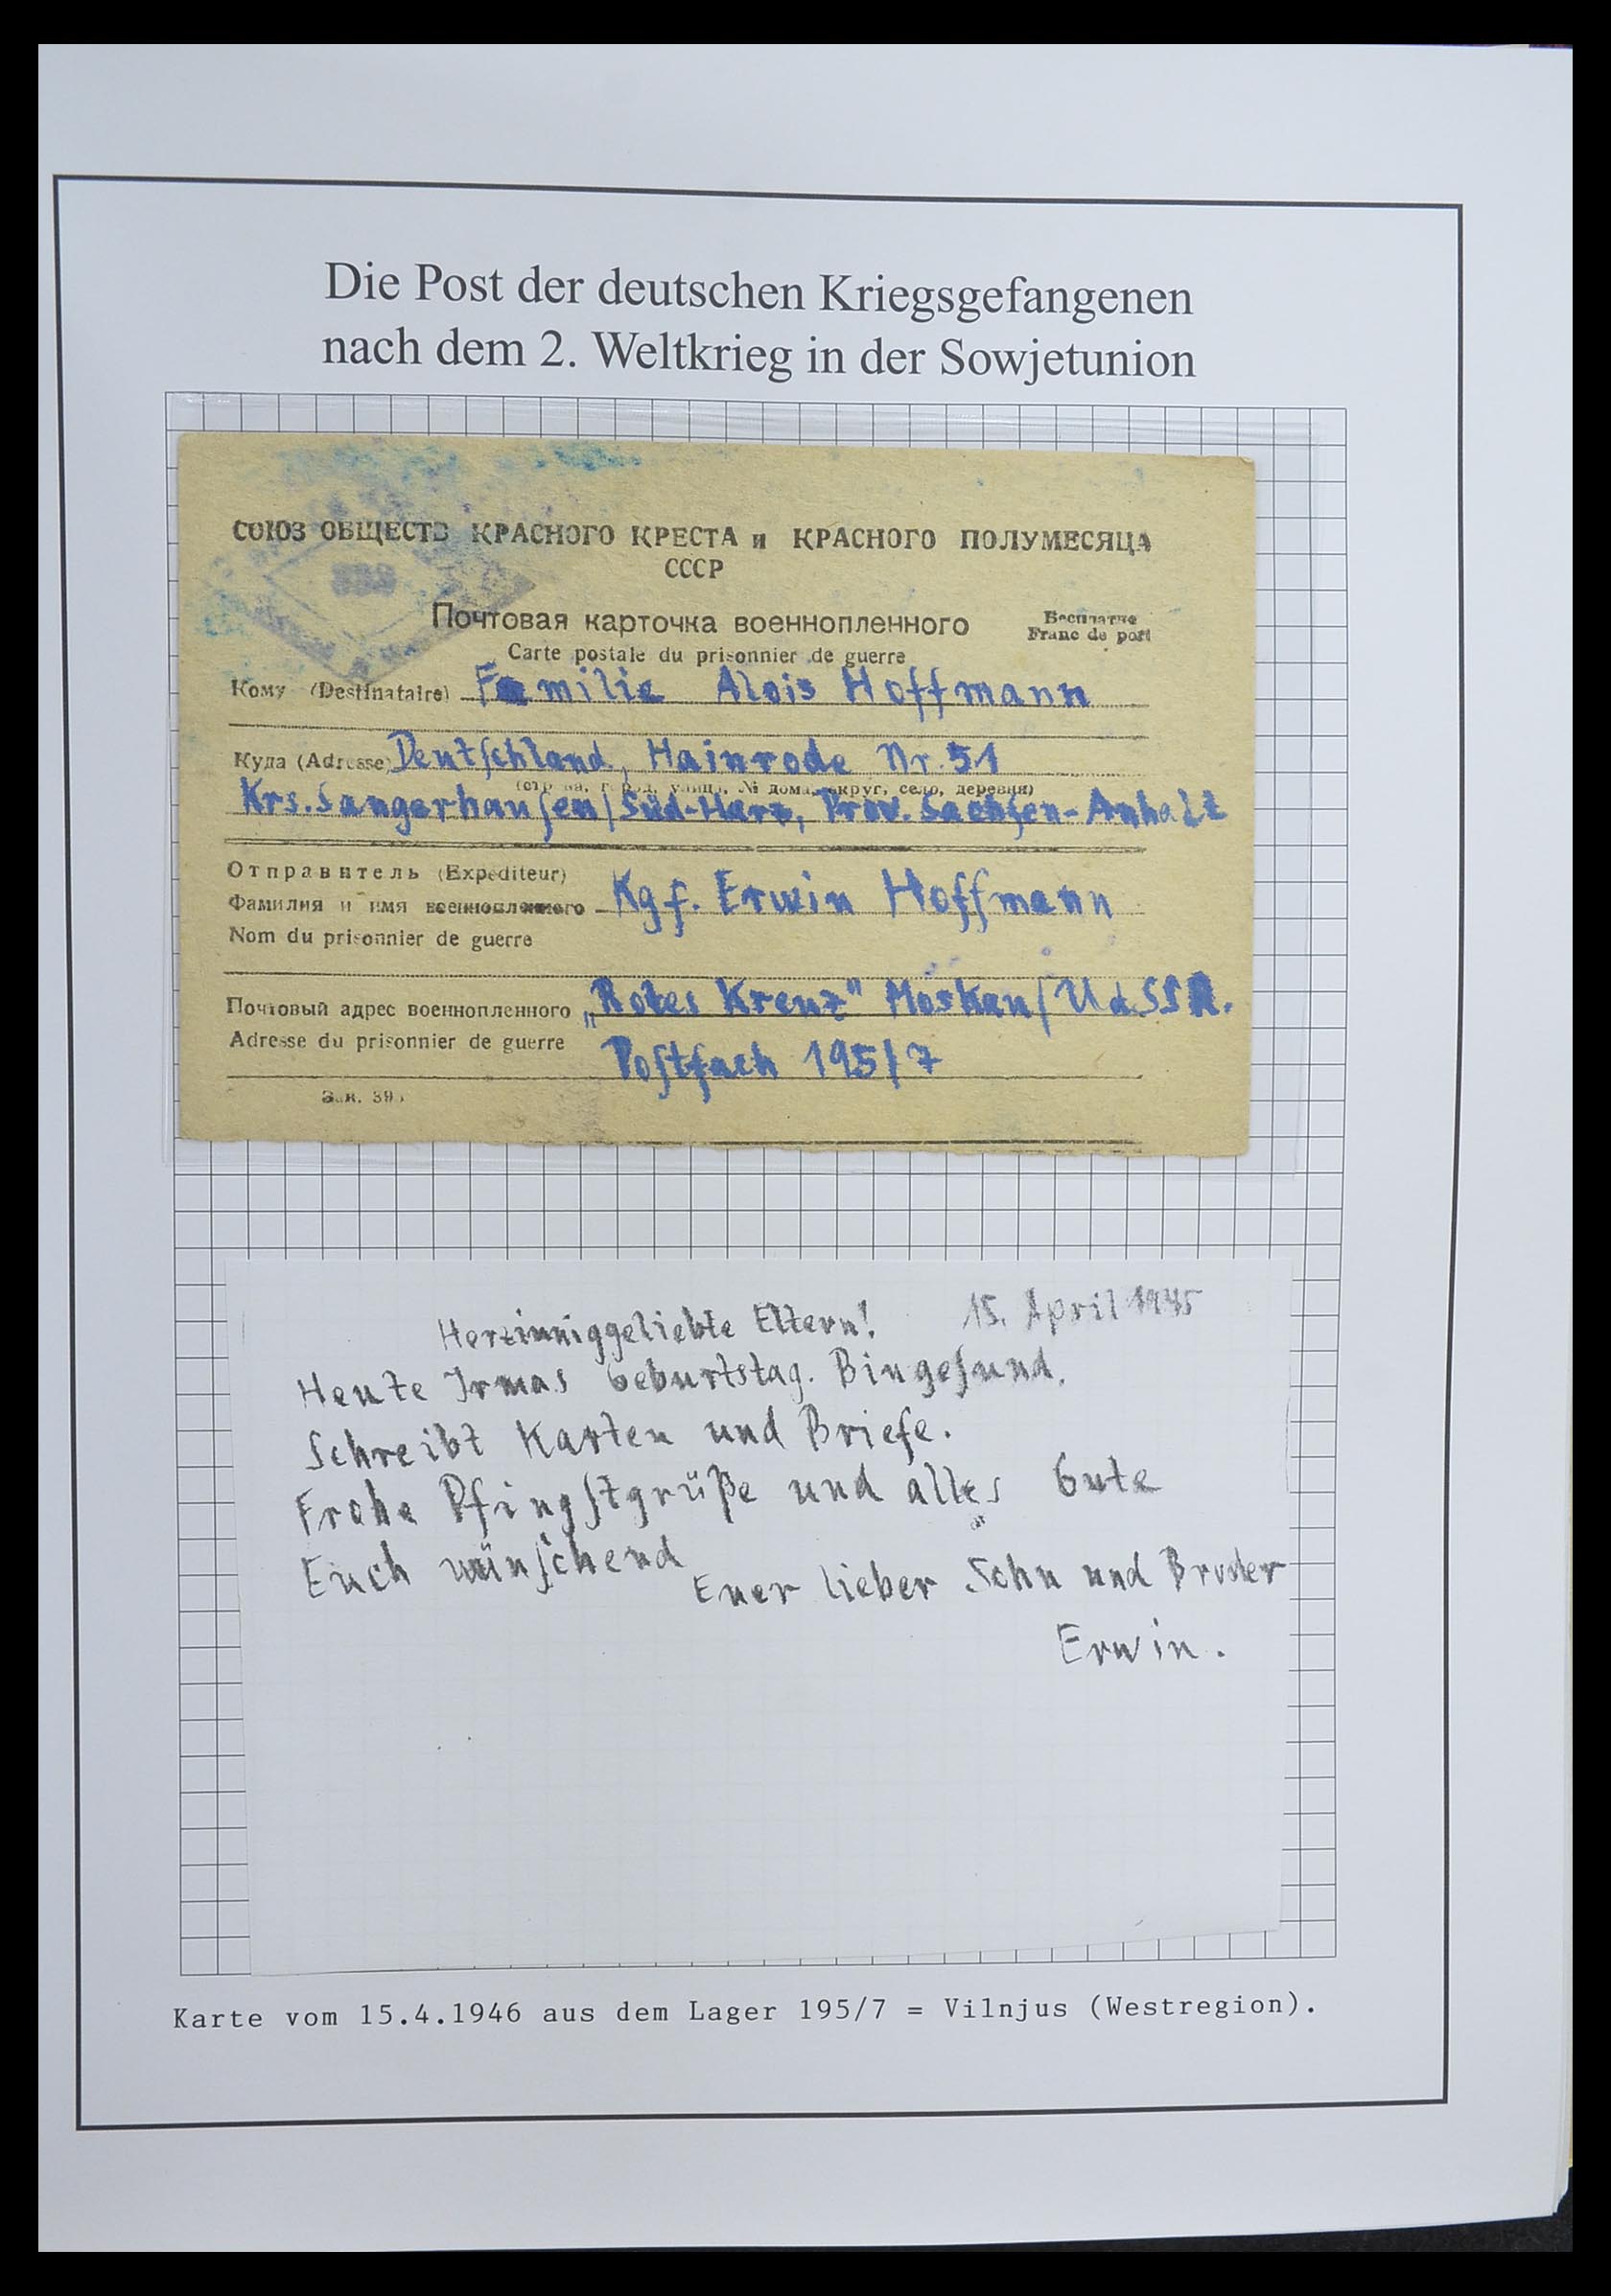 Die Post der deutschen Kriegsgefangenen
nach dem 2. Weltkrieg in der Sowjetunion
СОЮЗ ОБЩЕСТВ КРАСНОГО КРЕСТА и КРАСНОГО ПОЛУМЕСЯЦА
СССР
Почтовая карточка военнопленного
Бесплатно
Franc de port
Carte postale du prisonnier de guerre
Кому (Destinataire) Familie Alois Hoffmann
Куда (Adresse) Deutschland, Hainrode Nr. 51
(страна, город, улица, № дома, округ, село, деревня)
Krs. Sangerhausen/Süd-Harz, Prov. Sachsen-Anhalt
Отправитель (Expéditeur)
Фамилия и имя военнопленного Kgf. Erwin Hoffmann
Nom du prisonnier de guerre
Почтовый адрес военнопленного „Rotes Kreuz" Moskau/UdSSR.
Adresse du prisonnier de guerre Postfach 195/7
Зак. 39
Herzinniggeliebte Eltern! 15. April 1945
Heute Irmas Geburtstag. Bin gesund.
Schreibt Karten und Briefe.
Frohe Pfingstgrüße und alles Gute
Euch wünschend
Euer lieber Sohn und Bruder
Erwin.
Karte vom 15.4.1946 aus dem Lager 195/7 = Vilnjus (Westregion).